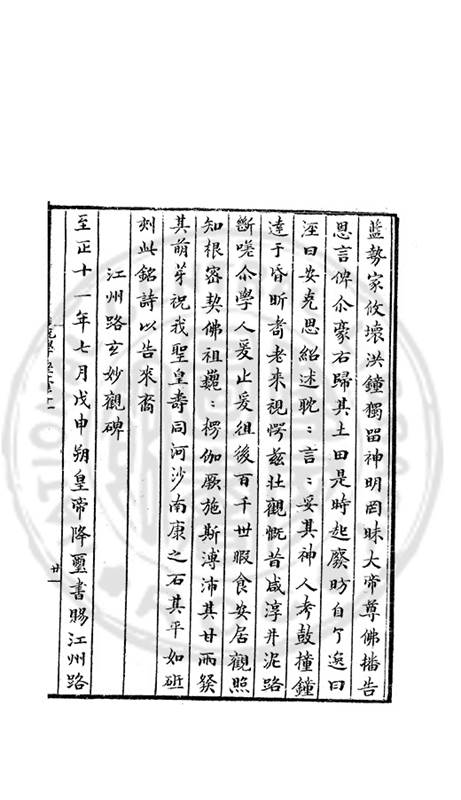 藍勢家攸壞洪鐘獨留神明罔昧大帝尊佛播告
思言俾尒豪右歸其土田是時起廢昉自丁逸曰
涇曰安克思紹述耽〻言〻妥其神人考鼓撞鐘
達于昏昕耆老來視愕茲壯觀慨昔咸淳井泥路
斷嗟尒學人爰止爰徂後百千世暇食安居觀照
知根密契佛祖巍〻楞伽厥施斯溥沛其甘雨發
其萌芽祝我聖皇壽同河沙南康之石其平如砥
刻此銘詩以告來裔
江州路玄妙觀碑
至正十一年七月戊申朔皇帝降璽書賜江州路
廿